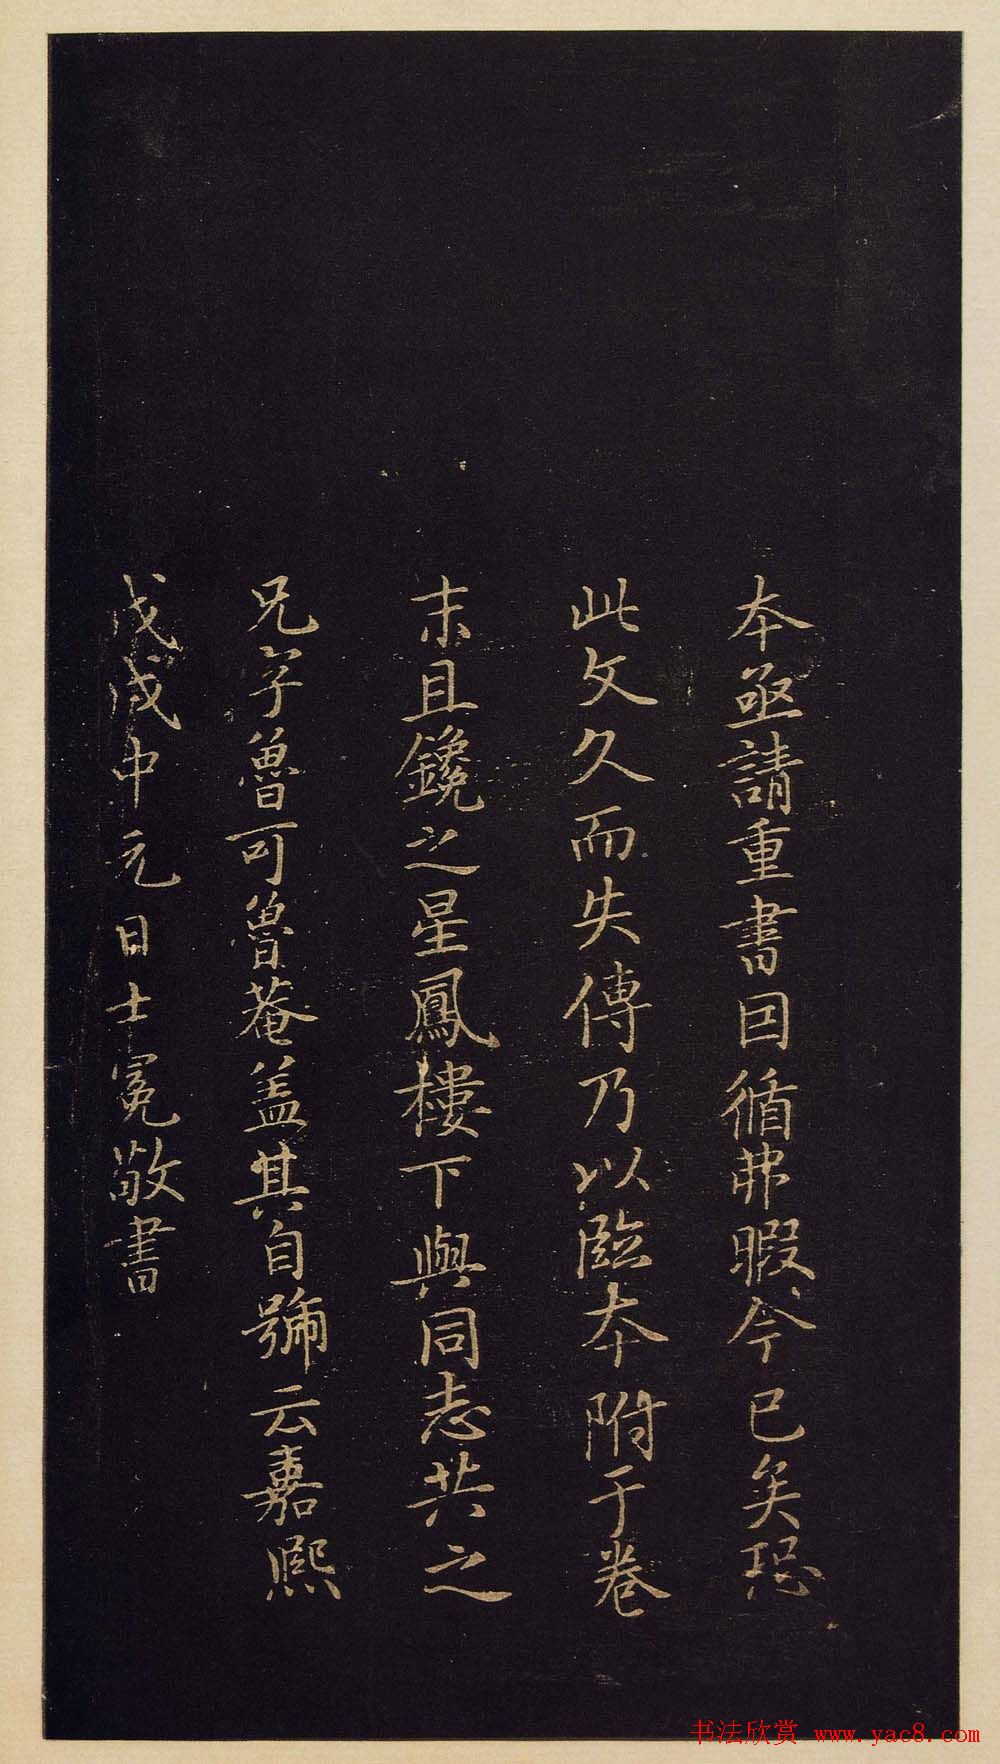 本亟請重書因循弗暇今已矣恐
此文久而失傳乃以臨本附于卷
末且鑱之星鳳樓下與同志共之
兄字魯可魯菴盖其自號云嘉熙
戊戌中元日士冕敬書
书法欣赏 www.yac8.com